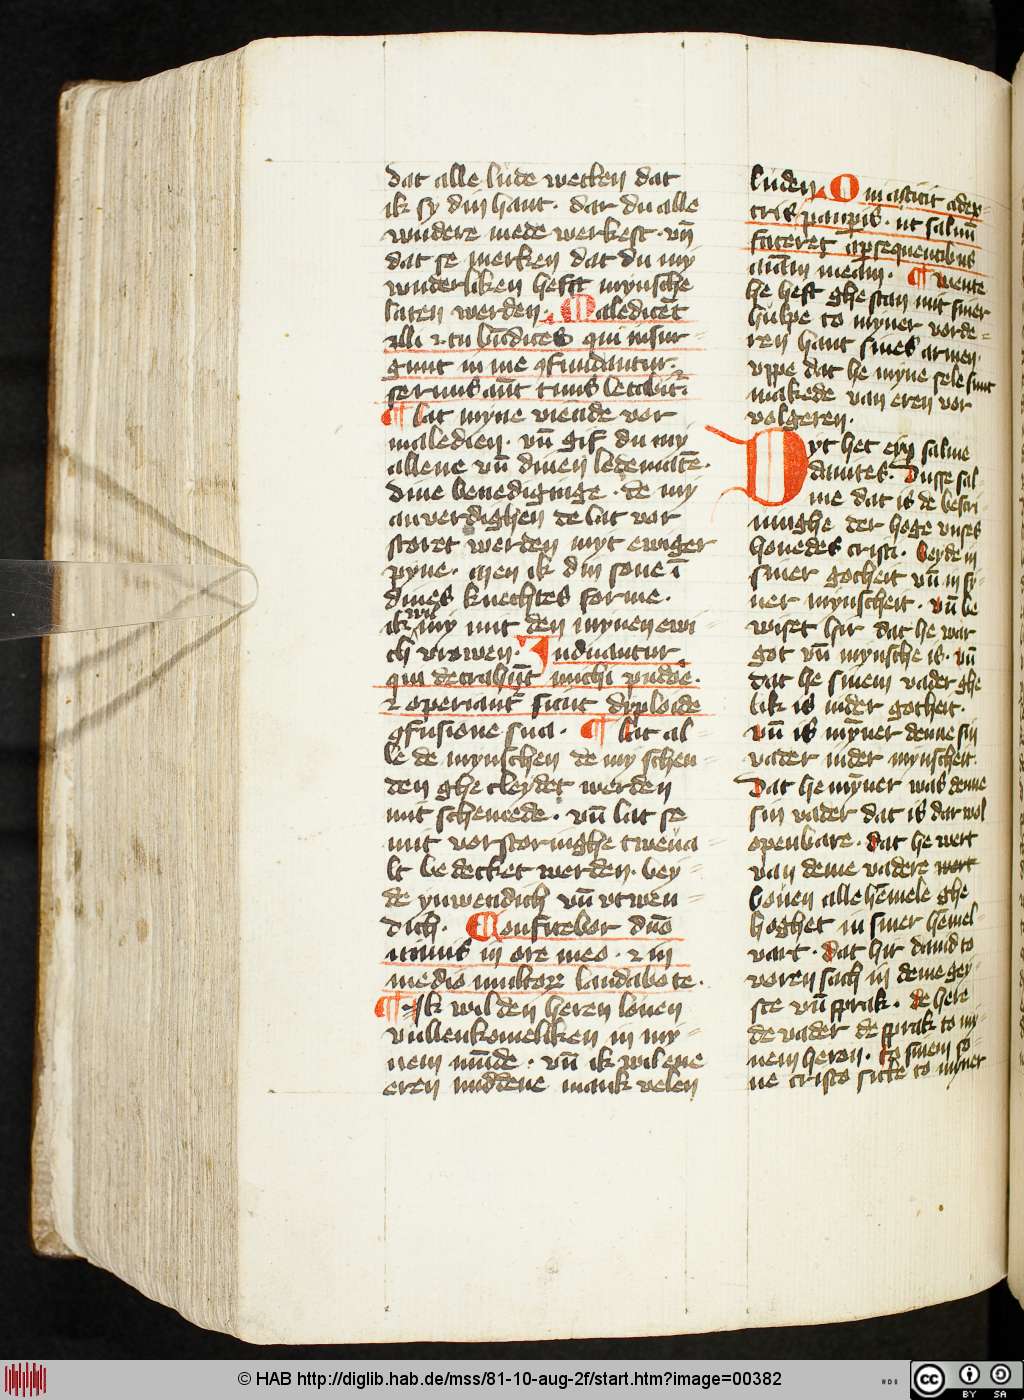 dat alle lude wecken dat
ik sy din hant · dar du alle
wndere mede werkest · vn̄
dat se merken dat du my
wnderliken hefst mynsche
laten werden · Maledicēt
illi ⁊ tu bn̄dices qui insur-
gunt in me ꝯfundantur
seruus aūt tuus letabit᷑
¶ Lat myne viende vor
maledien · vn̄ gif du my
allene vn̄ dinen ledematē ·
dine benedigīge · de my
anverdighen de lat vor
storet werden myt ewiger
pyne · men ik din sone ī
dines knechtes forme ·
ik wil my mit den mynen ewi
ch vrowen · Induantur
qui detrahūt michi pudoē ·
⁊ operiant᷑ sicut dyploide
ꝯfusione sua · ¶ Lat al-
le de mynschen de my schen-
den ghe cleydet werden
mit schemede · vn̄ lat se
mit vorstoringhe tweua-
lt be decket werden · bey-
de ynwendich vn̄ vtwen-
dich · Confitebor dn̄o
nimis in ore meo · ⁊ in
medio multoꝝ laudabo te ·
¶ Ik wil den heren louen
vullenkomeliken in my-
nem mūde · vn̄ ik wil ene
eren middene mank velen
luden Qui astitit a dex-
tris paup̲is · ut saluā
faceret a p̲sequentibus
aīam meam · ¶ Wente
he heft ghe stan mit siner
hulpe to myner vorde-
ren hant sines armen ·
vppe dat he myne sele sunt
makede van eren vor
volgeren ·
Dyt het eyn salme
dauites · Dusse sal-
me dat is de bescri-
uinghe der hoge vnses
houedes cristi · Beyde in
siner gotheit vn̄ in si-
ner mynscheit · vn̄ be
wiset hir dat he war
got vn̄ mynsche is · vn̄
dat he sinem vader ghe
lik is in der gotheit ·
vn̄ is mȳner denne sin
vader in der mynscheit ·
Dat he mȳner was denne
sin vader dat is dar wol
openbare · dat he wert
van deme vadere wert
bouen alle hēmele ghe
hoghet in siner hēmel-
vart · dat hir dauid to
voren sach in deme gey-
ste vn̄ sprak · de here
de vader de sprak to my-
nem heren · to sinem so-
ne cristo sitte to myner
© HAB http://diglib.hab.de/mss/81-10-aug-2f/start.htm?image=00382
cc BY SA